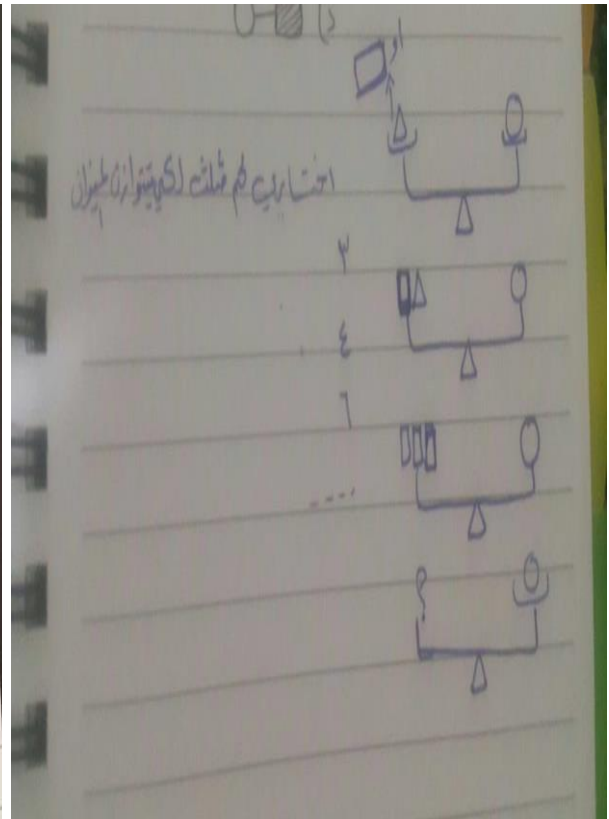 د)
او
اختار كم مثلث لكي يتوازن الميزان
٣
٤
٦
....
؟